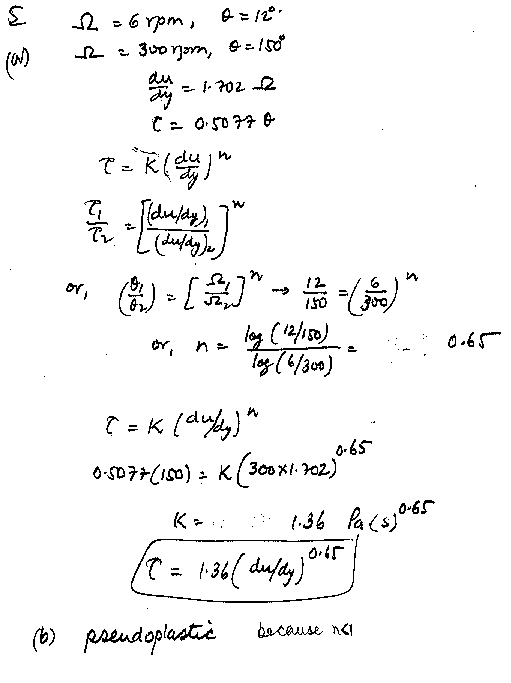 Σ Ω = 6 rpm, θ = 12°.
(a) Ω = 300 rpm, θ = 150°
du/dy = 1.702 Ω
τ = 0.5077 θ
τ = K (du/dy)^n
τ₁/τ₂ = [(du/dy)₁/(du/dy)₂]^n
or, (θ₁/θ₂) = [Ω₁/Ω₂]^n → 12/150 = (6/300)^n
or, n = log (12/150)/log (6/300) = 0.65
τ = K (du/dy)^n
0.5077(150) = K (300×1.702)^0.65
K = 1.36 Pa (s)^0.65
τ = 1.36 (du/dy)^0.65
(b) pseudoplastic because n<1